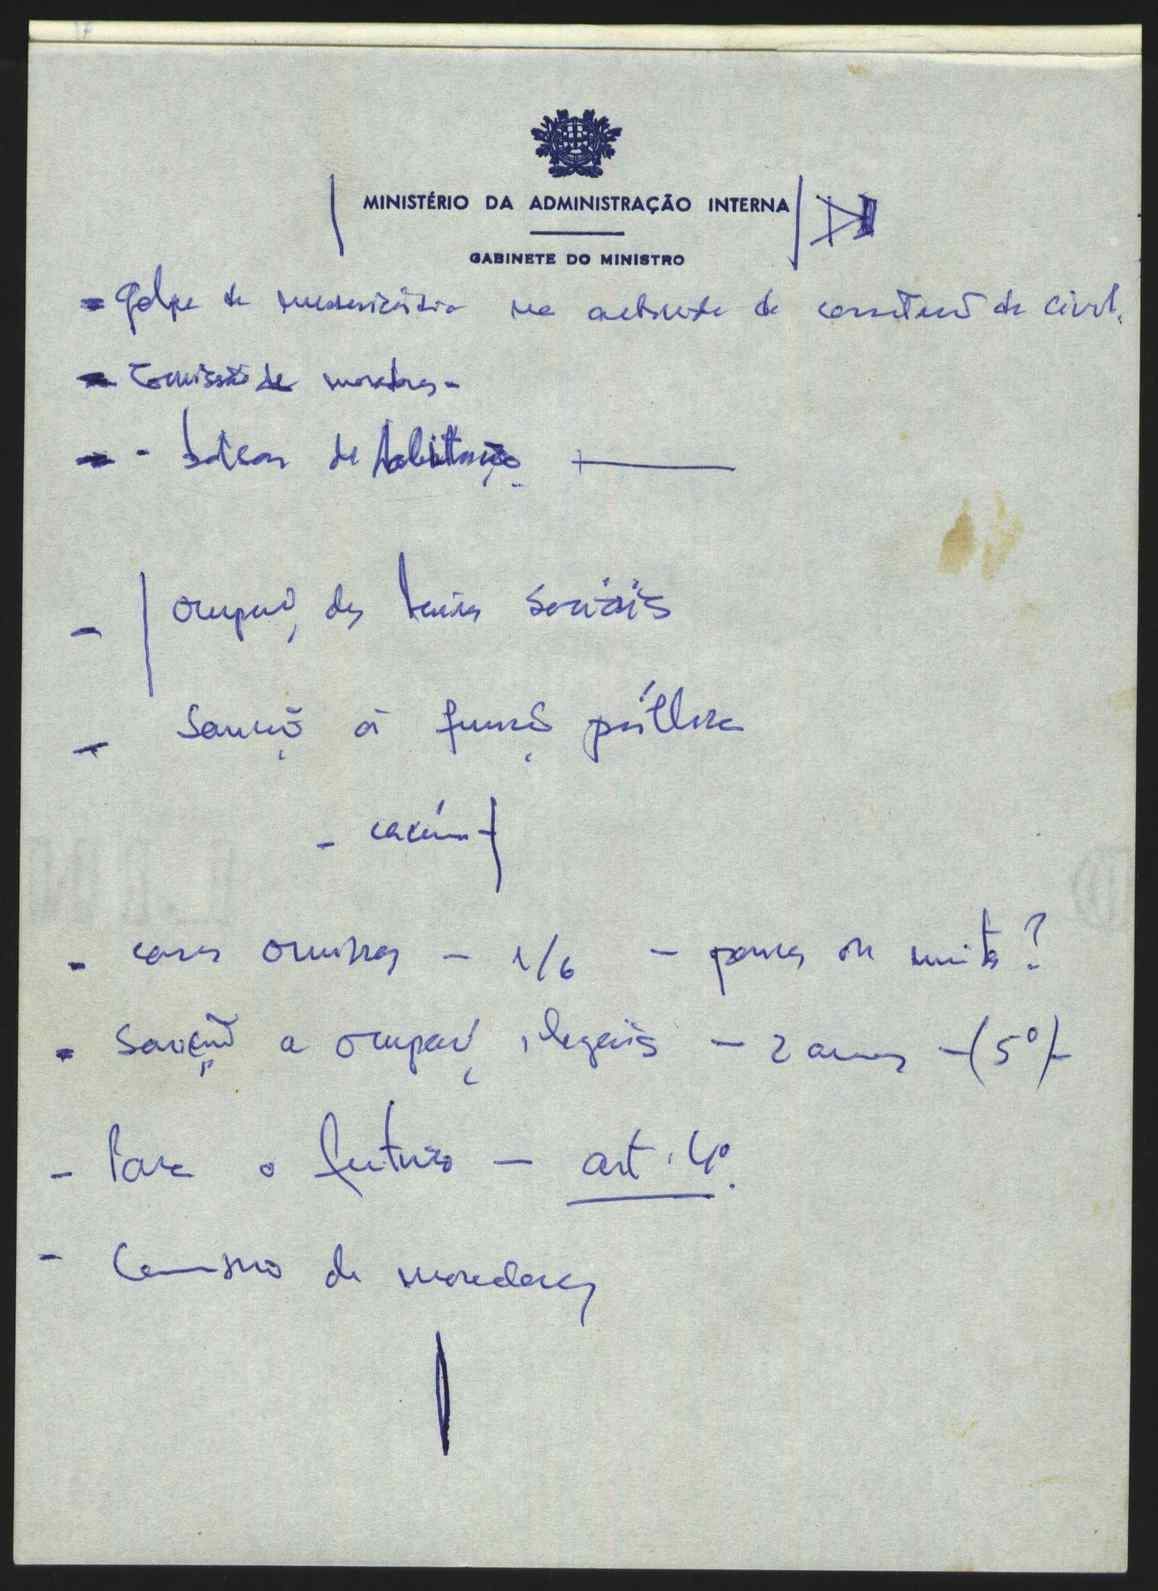 MINISTÉRIO DA ADMINISTRAÇÃO INTERNA
GABINETE DO MINISTRO
- Golpe de misericórdia na actividade de construção de civil.
- Comissão de moradores -
- - bolsas de habitação
- Ocupação dos bairros sociais
- Sanção à função pública
- caxias
- casas omissas - 1/6 - poucas ou muitas?
- Sanção a ocupações ilegais - 2 anos - (5º) -
- Para o futuro - art. 4º.
- Comissão de moradores